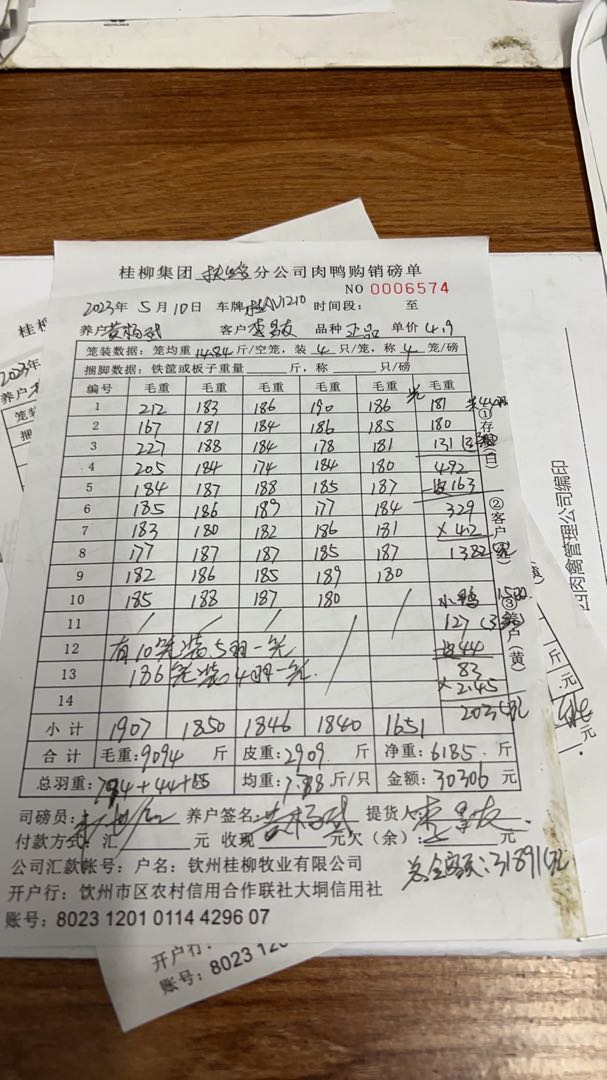 桂柳集团 扶绥 分公司肉鸭购销磅单
NO 0006574
2023年 5月10日 车牌 桂AV1210 时间段: 至
养户 黄杨武 客户 李昌友 品种 正品 单价 4.9
笼装数据: 笼均重 14.84 斤/空笼, 装 4 只/笼, 称 4 笼/磅
捆脚数据: 铁筐或板子重量 斤, 称 只/磅
编号 毛重 毛重 毛重 毛重 毛重 毛重
1 212 183 186 190 186 181
2 167 181 184 186 185 180
3 227 188 184 178 181 131
4 205 184 174 184 180 492
5 184 187 188 185 187 皮163
6 185 186 189 177 184 329
7 183 180 182 186 181 ×4.2
8 177 187 187 185 187 1382元
9 182 186 185 189 180
10 185 188 187 180 小鸭
11 / / / / / 127
12 有10笼装5羽一笼 皮44
13 186笼装4羽一笼 83
×2.45
14 203元
小计 1907 1850 1846 1840 1651
合计 毛重:9094 斤 皮重:2909 斤 净重:6185 斤
总羽重: 均重:7.88 斤/只 金额:30306 元
司磅员: 养户签名: 黄杨武 提货人 李昌友
付款方式: 汇 元 收现 元 欠(余): 元
公司汇款帐号: 户名: 钦州桂柳牧业有限公司
总金额:31891元
开户行: 钦州市区农村信用合作联社大垌信用社
账号: 8023 1201 0114 4296 07
①存根(白)
②客户
③养户(黄)
肉禽管理公司编印
2023年
开户行:
账号: 8023 120